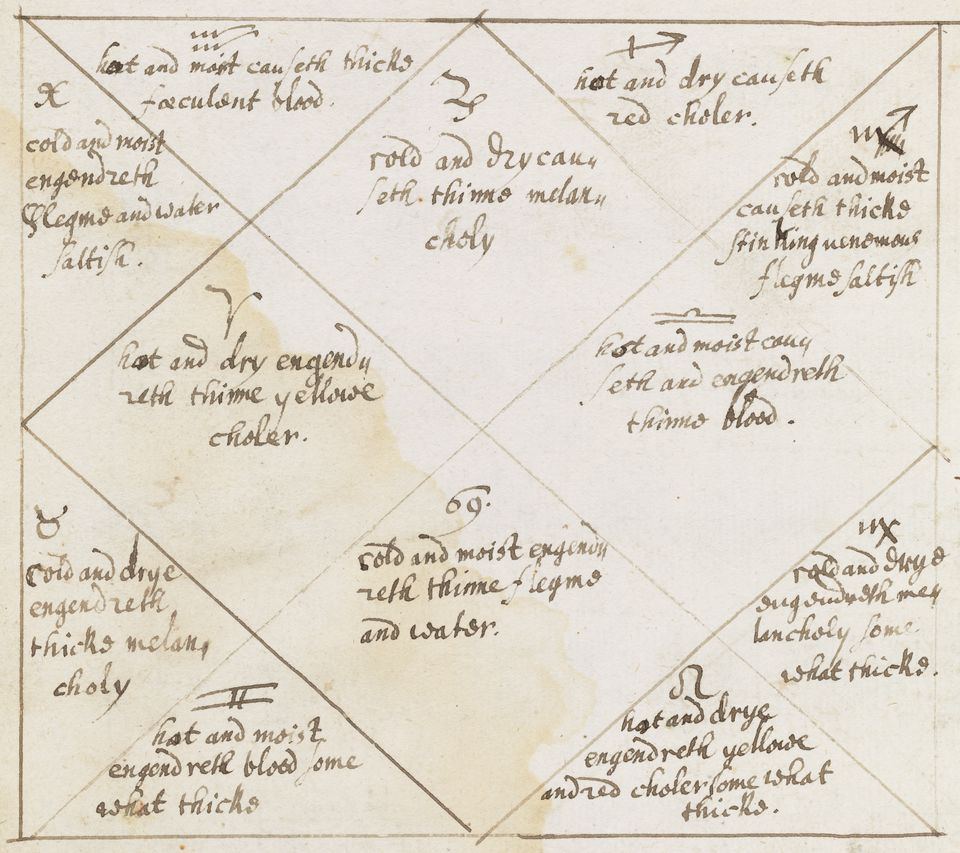 ♒
hot and moist causeth thicke
fæculent blood.
♓
cold and moist
engendreth
flegme and water
saltish.
♑
cold and dry cau„
seth thinne melan„
choly
♐
hot and dry causeth
red choler.
♏
cold and moist
causeth thicke
stinking venemous
flegme saltish
♈
hot and dry engend„
reth thinne yellowe
choler.
♎
hot and moist cau„
seth and engendreth
thinne blood.
♉
cold and drye
engendreth
thicke melan„
choly
♋
cold and moist engend„
reth thinne flegme
and water.
♍
cold and drye
engendreth me„
lancholy some
what thicke.
♊
hot and moist
engendreth blood some
what thicke
♌
hot and drye
engendreth yellowe
and red choler some what
thicke.